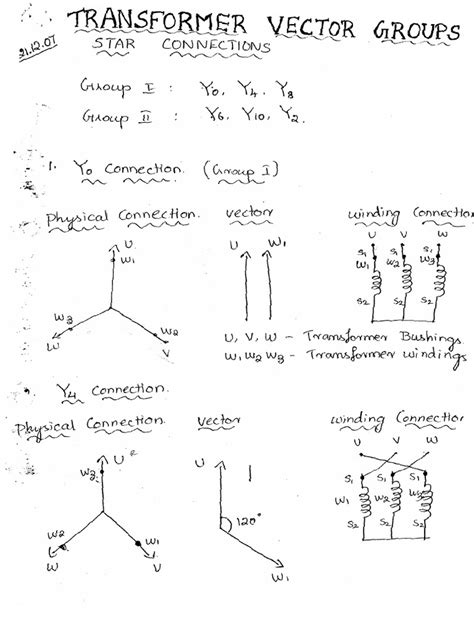 TRANSFORMER VECTOR GROUPS
21.12.07
STAR CONNECTIONS
Group I : Y0, Y4, Y8
Group II : Y6, Y10, Y2.
1. Y0 Connection. (Group I)
Physical Connection. Vector Winding Connection
U
W1
W3
W2
W
V
U W1
U V W
S1 S1 S1
W1 W2 W3
S2 S2 S2
U, V, W - Transformer Bushings
W1 W2 W3 - Transformer windings
Y4 Connection.
Physical Connection. Vector Winding Connection
U
W3
W2
W1
W
V
U
120°
W1
U V W
S1 S1 S1
W1 W2 W3
S2 S2 S2